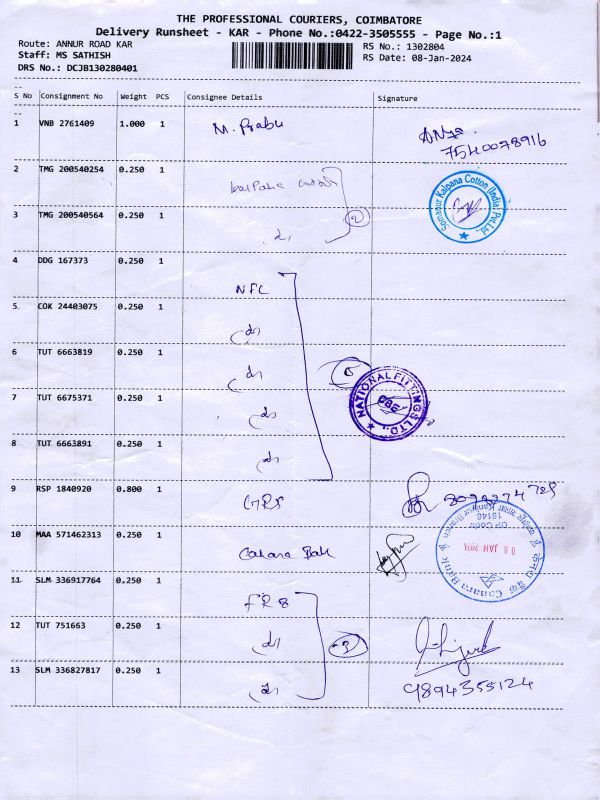 THE PROFESSIONAL COURIERS, COIMBATORE
Delivery Runsheet - KAR - Phone No.:0422-3505555 - Page No.:1
Route: ANNUR ROAD KAR
RS No.: 1302804
Staff: MS SATHISH
RS Date: 08-Jan-2024
DRS No.: DCJB130280401
S No Consignment No Weight PCS Consignee Details Signature
1 VNB 2761409 1.000 1 M. Prabu
7540078916
2 TMG 200540254 0.250 1
Somanur Kalpana Cotton (India) Pvt.Ltd.,
3 TMG 200540564 0.250 1 2
4 DDG 167373 0.250 1 NFL
5 COK 24403075 0.250 1
6 TUT 6663819 0.250 1 5
7 TUT 6675371 0.250 1
NATIONAL FITTINGS LTD.,
CBE
8 TUT 6663891 0.250 1
9 RSP 1840920 0.800 1
10 MAA 571462313 0.250 1 Canara Bank
Canara Bank
08 JAN 2024
11 SLM 336917764 0.250 1
12 TUT 751663 0.250 1 3
13 SLM 336827817 0.250 1
9894355124